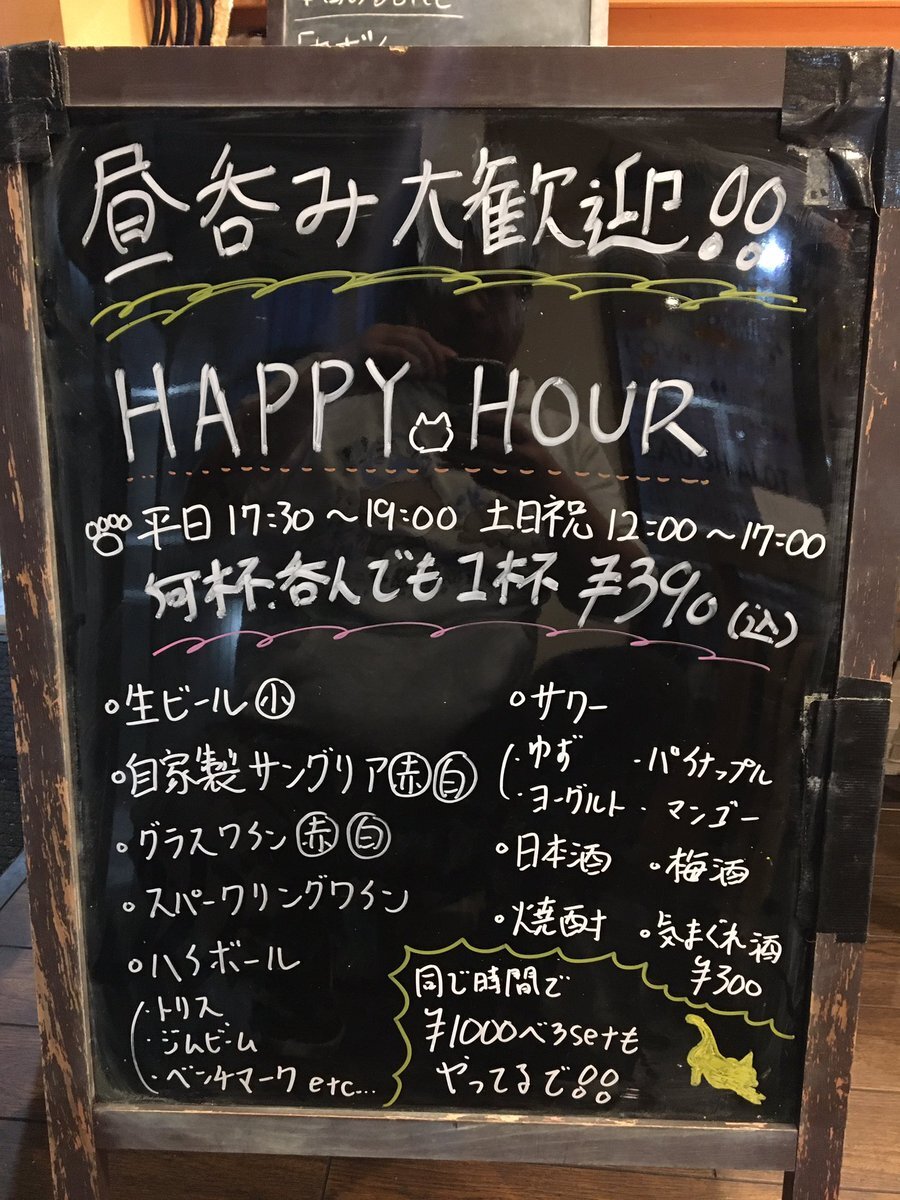 昼呑み大歓迎!!
HAPPY HOUR
平日 17:30～19:00 土日祝 12:00～17:00
何杯呑んでも1杯 ¥390(込)
・生ビール㊙小
・自家製サングリア 赤 白
・グラスワイン 赤 白
・スパークリングワイン
・ハイボール
・トリス
・ジムビーム
・ベンチマーク etc...
・サワー
・ゆず ・パイナップル
・ヨーグルト ・マンゴー
・日本酒 ・梅酒
・焼酎 ・気まぐれ酒
¥300
同じ時間で
¥1000べろsetも
やってるで!!